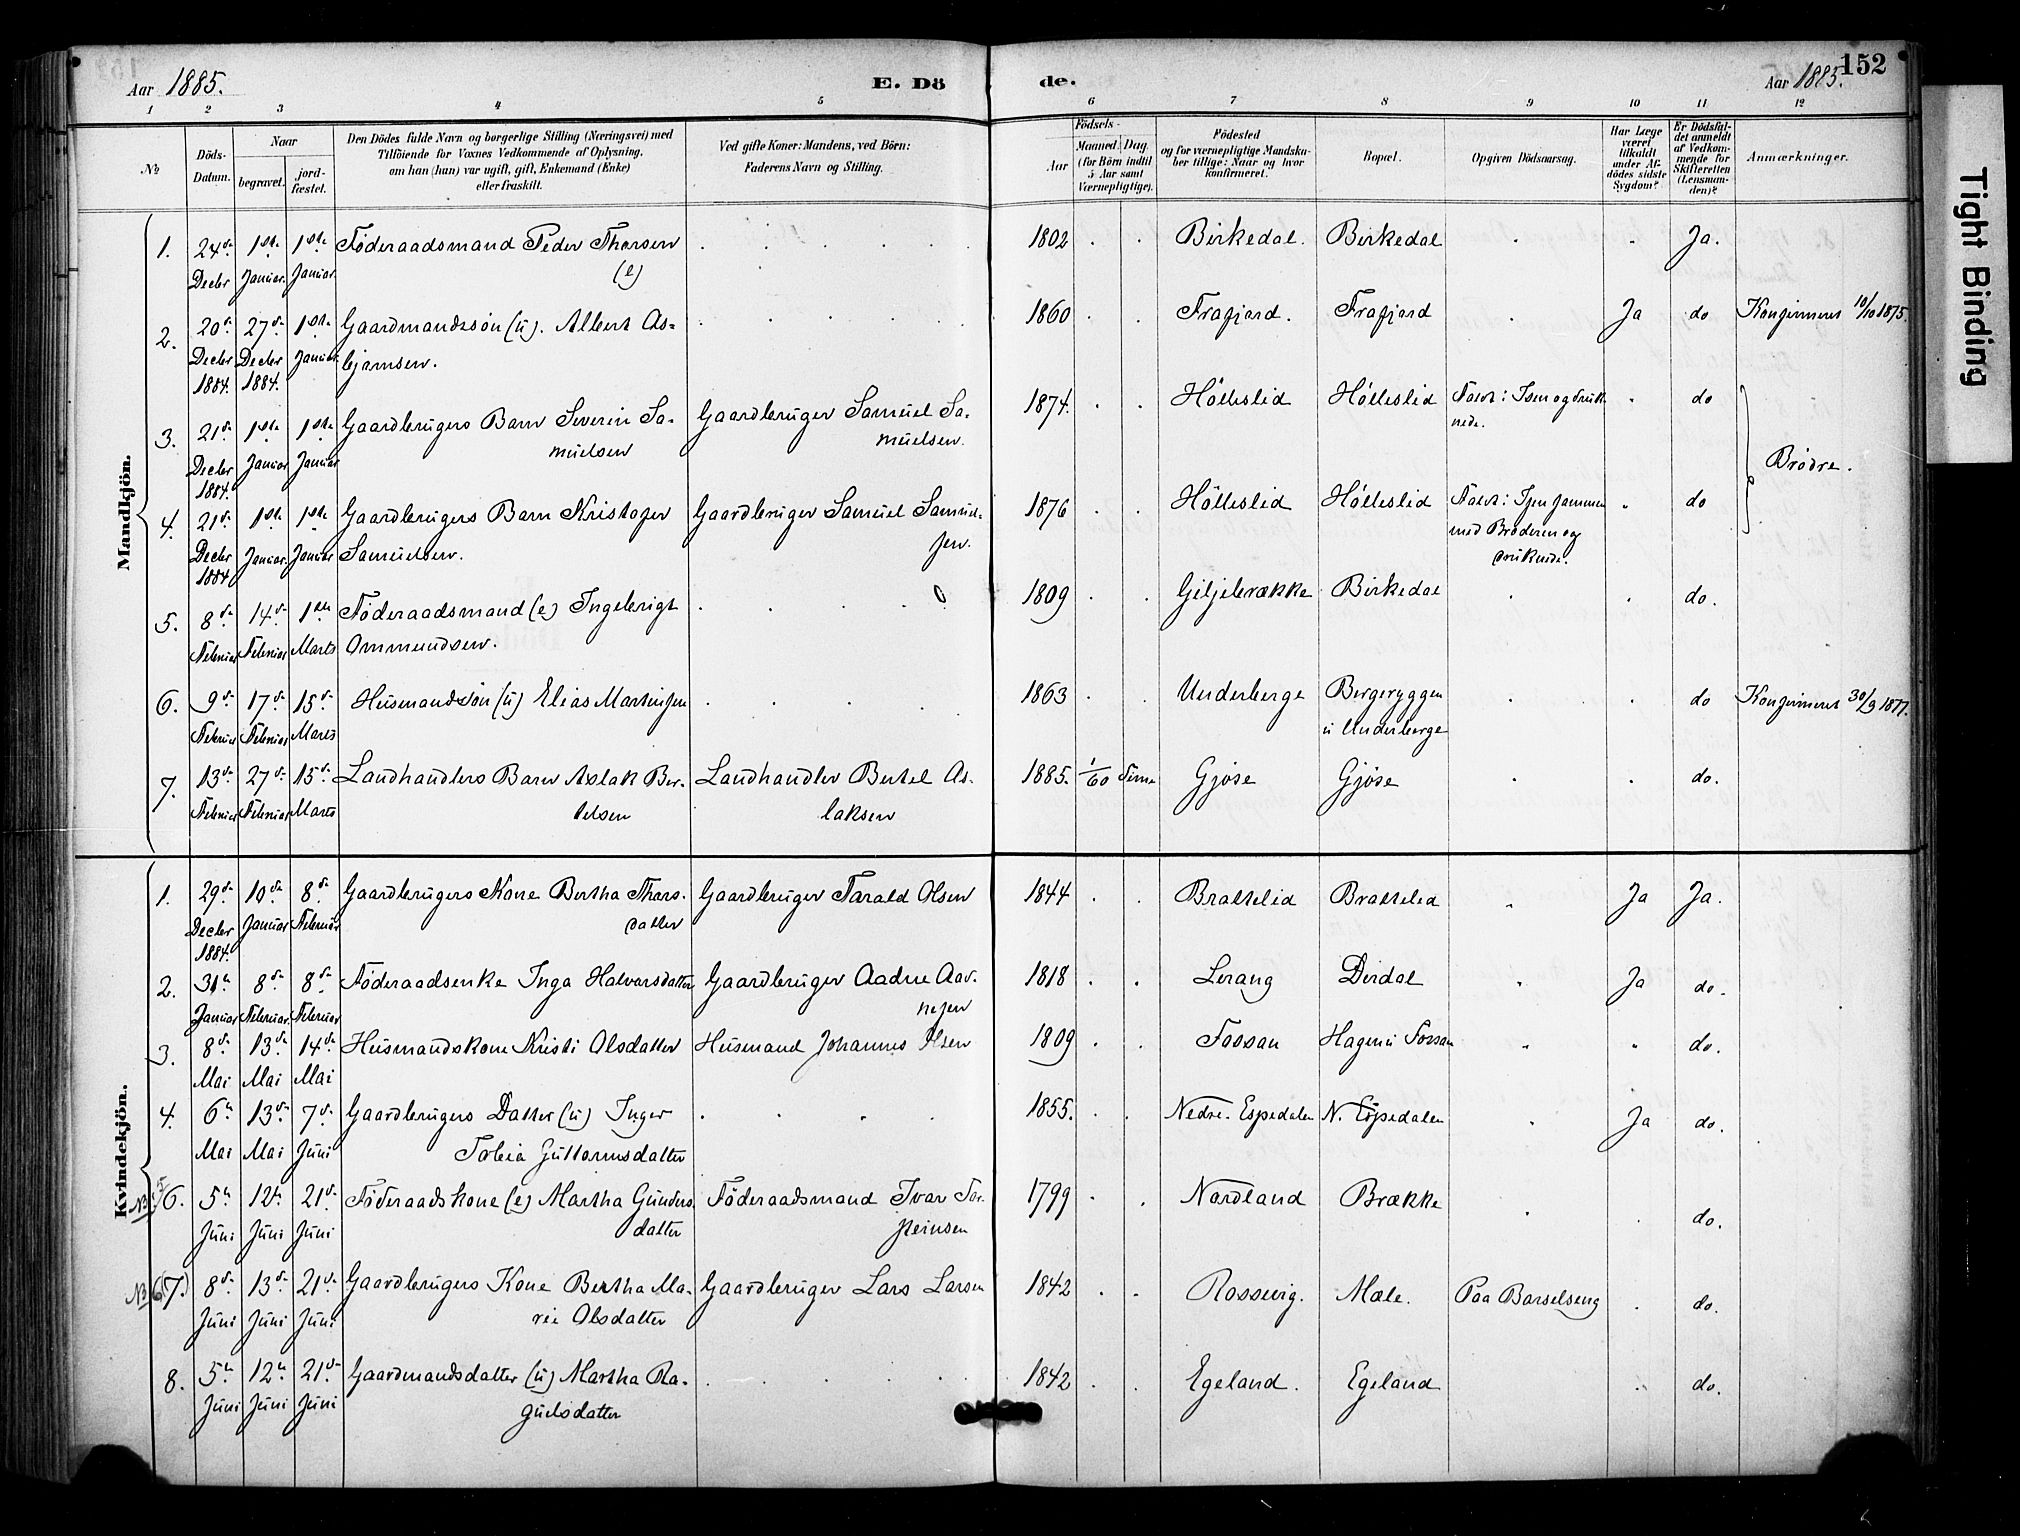 152
Aar 1885.
E. Dö de.
Aar 1885.
1 2 3 4 5 6 7 8 9 10 11 12
No
Döds-Datum.
Naar
begravet.
jord-fæstet.
Den Dödes fulde Navn og borgerlige Stilling (Næringsvei) med
Tilföiende for Voxnes Vedkommende af Oplysning,
om han (hun) var ugift, gift, Enkemand (Enke)
eller fraskilt.
Ved gifte Koner: Mandens, ved Börn:
Faderens Navn og Stilling.
Födsels-
Aar
Maaned. Dag.
(for Börn indtil
5 Aar samt
Værnepligtige).
Födested
og for værnepligtige Mandsku-
ber tillige: Naar og hvor
konfirmeret.
Bopæl.
Opgiven Dödsaarsag.
Har Læge
været
tilkaldt
under Af-
dödes sidste
Sygdom?
Er Dödsfal-
det anmeldt
af Vedkom-
mende for
Skifteretten
(Lensman-
den)?
Anmærkninger.
Mandkjön.
1. 24de Decbr 1ste Januar. 1ste Januar Föderaadsmand Peder Thorsen (e) 1802 Birkedal. Birkedal Ja.
2. 20de Decbr 1884. 27de Decbr 1884. 1ste Januar Gaardmandssön (u). Albert As-
bjørnsen. 1860 Frafjord. Frafjord Ja do Konfirmeret 10/10 1875.
3. 21de Decbr 1884. 1ste Januar 1ste Januar Gaardbrugers Barn Severin Sa-
muelsen Gaardbruger Samuel Sa-
muelsen. 1874. Hölleslid Hölleslid Faldt i Isen og druk-
nede. do
Brødre.
4. 21de Decbr 1884 1ste Januar. 1ste Januar Gaardbrugers Barn Kristofer
Samuelsen. Gaardbruger Samuel Samuel-
sen. 1876 Hölleslid Hölleslid Faldt i Isen sammen
med Broderen og
druknede. do
5. 8de Februar 14de Februar 1ste Marts Föderaadsmand (e) Ingebrigt
Ommundsen. 1809 Giljebrække Birkedal do.
6. 9de Februar 17de Februar 15de Marts Husmandssön (u) Elias Martinsen 1863 Underberge Bergeryggen
u Underberge do Konfirmeret 30/9 1877.
7. 13de Februar 27de Februar 15de Marts Landhandlers Barn Aslak Ber-
telsen Landhandler Bertel As-
laksen 1885. 1/60 Time Gjöse Gjöse do.
Kvindekjön.
1. 29de Decbr 1884. 10de Januar 8de Februar Gaardbrugers Kone Bertha Thors-
datter Gaardbruger Tarald Olsen 1844 Brattelid Brattelid Ja Ja.
2. 31te Januar 8de Februar. 8de Februar Föderaadsenke Inga Halvorsdatter Gaardbruger Aadne Aad-
nesen 1818 Lerang Dirdal Ja do.
3. 8de Mai 13de Mai 14de Mai Husmandskone Kristi Olsdatter Husmand Johannes Olsen 1809 Fossan Hagen u Fossan do.
4. 6te Mai 13de Mai 7de Juni Gaardbrugers Datter (u) Inger
Tobia Guttormsdatter 1855. Nedre. Espedalen N. Espedalen Ja do.
NB 5 6. 5te Juni 12te Juni 21de Juni Föderaadskone (e) Martha Gunders-
datter Föderaadsmand Ivar Tor-
steinsen 1799 Nordland Brække do.
NB 6 (7.) 8de Juni 13de Juni 21de Juni Gaardbrugers Kone Bertha Ma-
rie Olsdatter Gaardbruger Lars Larsen 1842 Rossevig. Mæle. Paa Barselseng do.
8. 5te Juni 12te Juni 21de Juni Gaardmandsdatter (u) Martha Ra-
guelsdatter 1842 Egeland. Egeland do.
Tight Binding